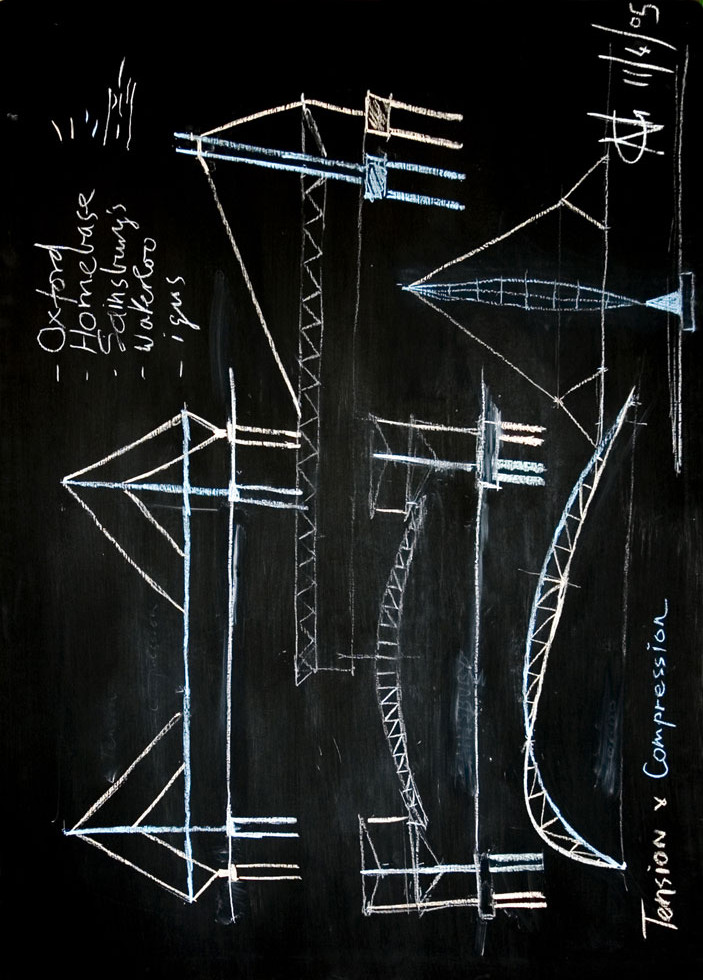 - Oxford
- Homebase
- Sainsbury's
- Waterloo
- igus
11/4/05
Tension & Compression